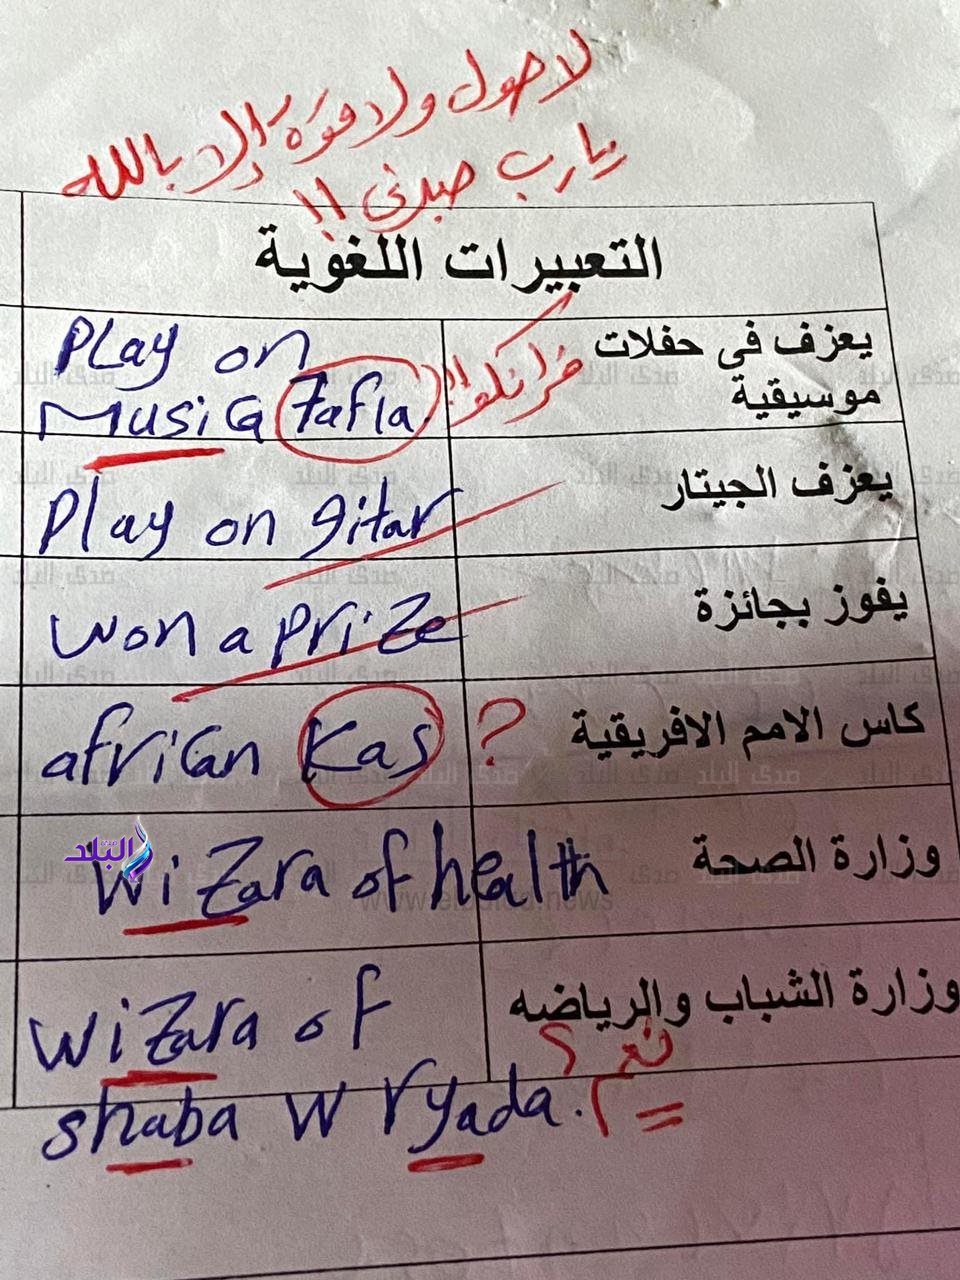 لا حول ولا قوة إلا بالله
يارب صبرنى !!
التعبيرات اللغوية
يعزف فى حفلات
موسيقية
Play on
Music Zafla.
!! فرانكو
يعزف الجيتار
Play on gitar
يفوز بجائزة
won a prize
كاس الامم الافريقية
african Kas
?
وزارة الصحة
Wizara of health
البلد
www.elbalad.news
وزارة الشباب والرياضه
Wizara of
shaba w ryada.
نعم ؟
صدى البلد